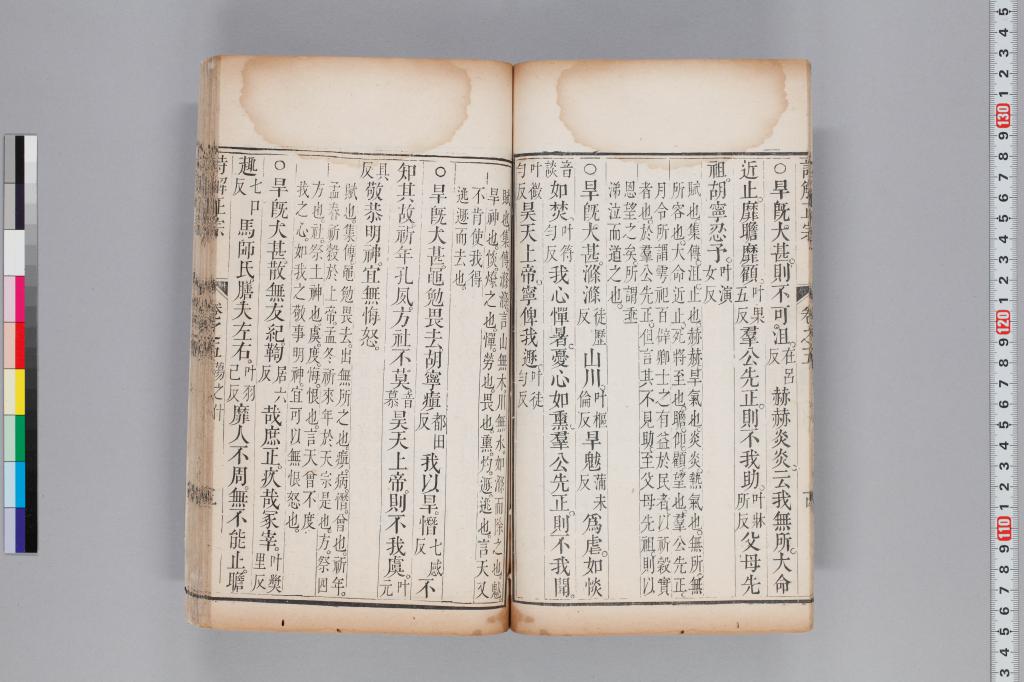 卷之五
○旱旣大甚。則不可沮。在呂反赫赫炎炎。云我無所。大命
近止。靡瞻靡顧。叶果五反羣公先正。則不我助。叶牀所反父母先
祖。胡寧忍予。叶演女反
賦也集傳沮止也赫赫旱氣也炎炎熱氣也無所無
所容也大命近止死將至也瞻仰顧望也羣公先正
月令所謂雩祀百辟卿士之有益於民者以祈穀實
者也於羣公先正但言其不見助至父母先祖則以
恩望之矣所謂垂
涕泣而道之也。
○旱旣大甚滌滌徒歷反山川。叶樞倫反旱魃蒲末反爲虐。如惔
音談如焚。叶符勻反我心憚暑。憂心如熏。羣公先正。則不我聞。
叶微勻反昊天上帝。寧俾我遯。叶徒勻反
賦也集傳滌滌言山無木川無水如滌而除之也魃
旱神也惔燎之也憚勞也畏也熏灼遯逃也言天又
不肯使我得
逃遯而去也。
○旱旣大甚黽勉畏去胡寧瘨都田反我以旱。憯七感反不
知其故。祈年孔夙。方社不莫。音慕昊天上帝。則不我虞。叶元
具反敬恭明神。宜無悔怒。
賦也集傳黽勉畏去出無所之也瘨病憯曾也祈年
孟春祈穀於上帝孟冬祈來年於天宗是也方祭四
方也社祭土神也虞度悔恨也言天曾不度
我之心如我之敬事明神宜可以無恨怒也。
○旱旣大甚散無友紀鞫居六反哉庶正。疚哉冢宰。叶奬里反
趣七口反馬師氏膳夫左右。叶羽己反靡人不周。無不能止。瞻
詩觧正宗 卷之五蕩之什